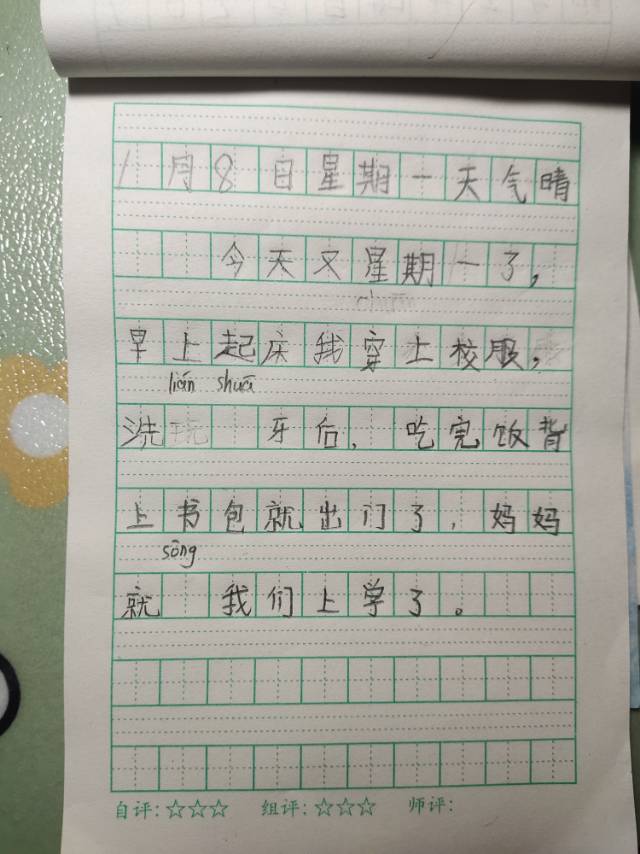 1月8日星期一天气晴
今天又星期一了,
早上起床我穿上校服,
lián shuā
洗 牙后, 吃完饭背
上书包就出门了,妈妈
sōng
就 我们上学了。
自评:☆☆☆ 组评:☆☆☆ 师评: